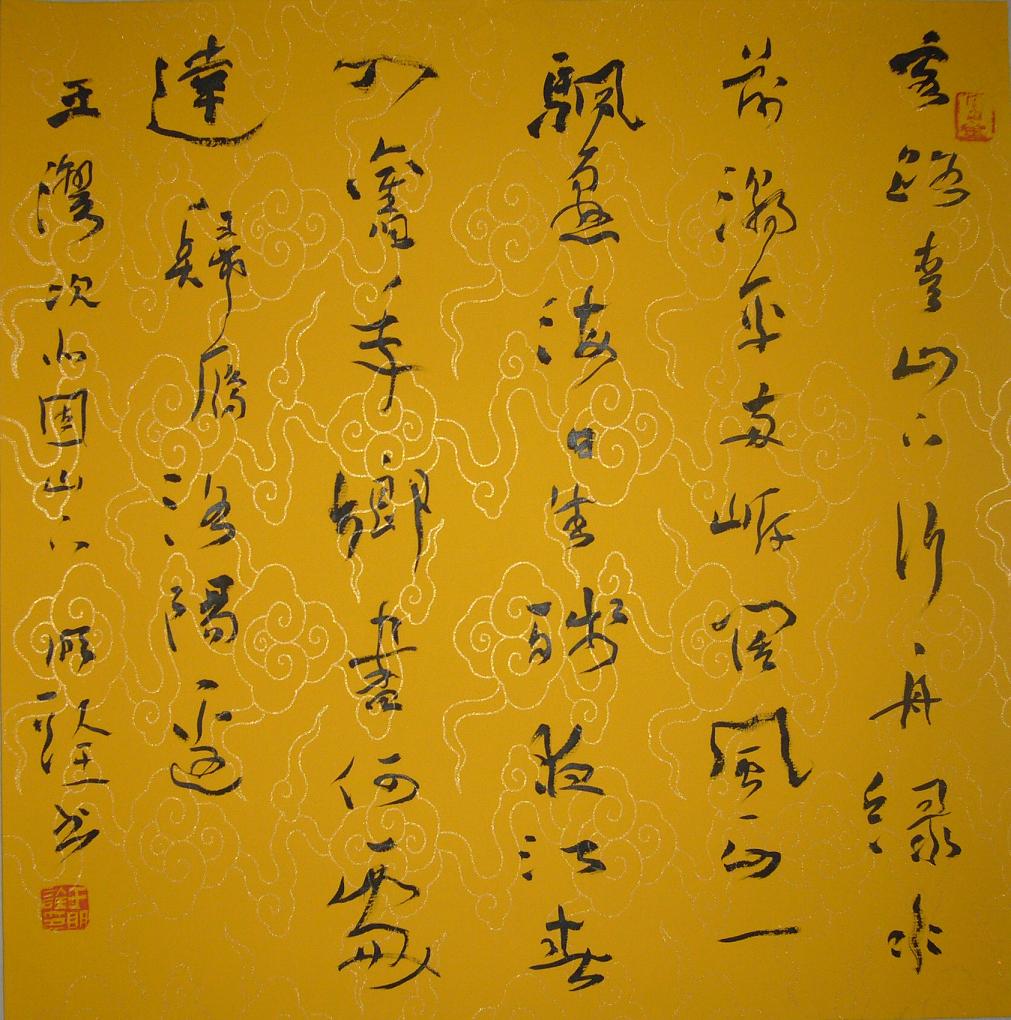 客路青山下行舟綠水
前潮平两岸闊風正一
颿懸海日生殘夜江春
入舊年鄉書何處
達歸雁洛陽邊
王灣次北固山下 书